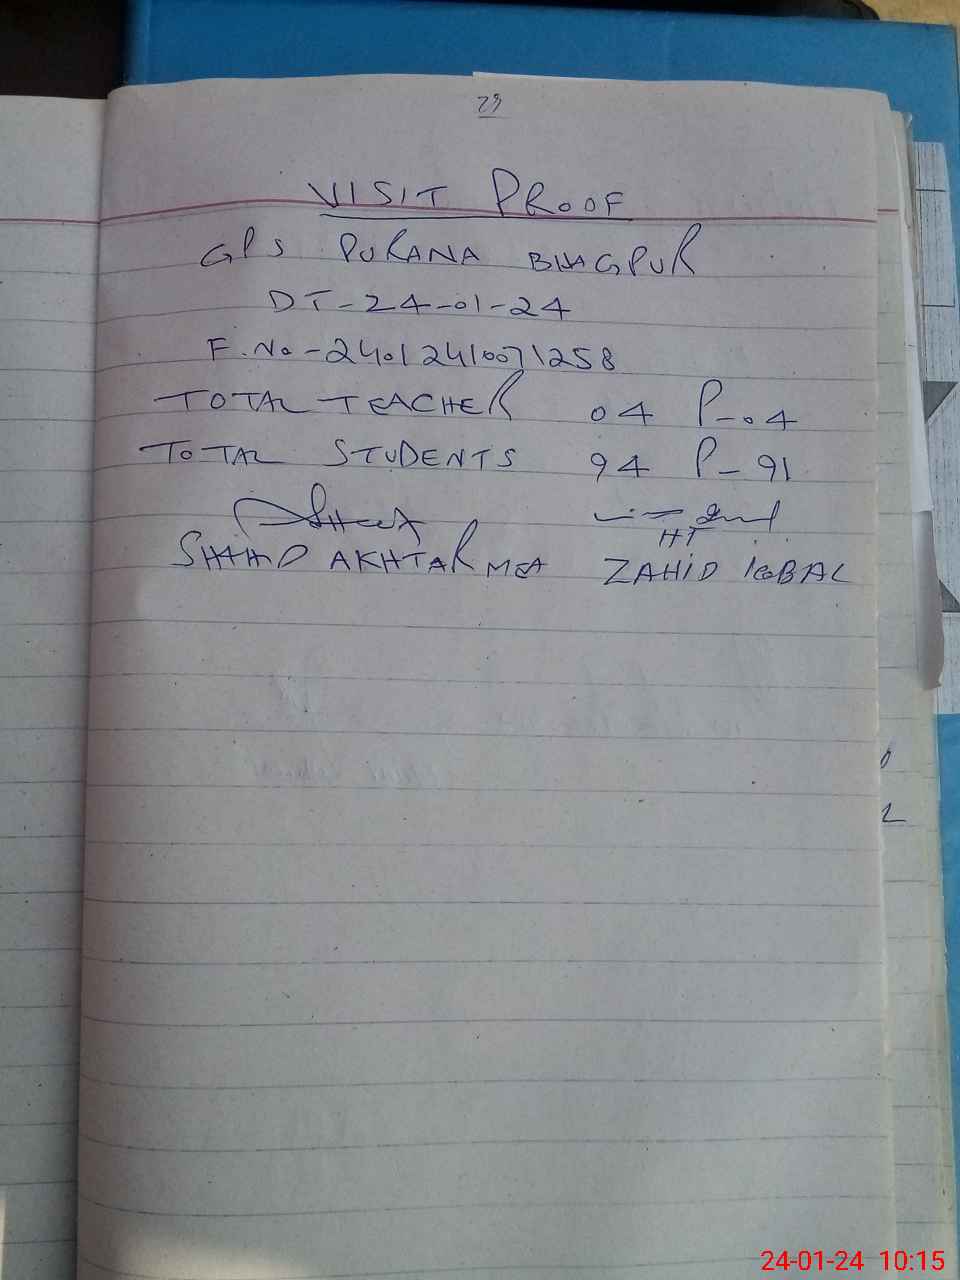 29
VISIT PROOF
GPS PURANA BHAGPUR
DT-24-01-24
F.No-24012410071258
TOTAL TEACHER 04 P-04
TOTAL STUDENTS 94 P-91
HT
SHAHID AKHTAR MEA ZAHID IQBAL
24-01-24 10:15